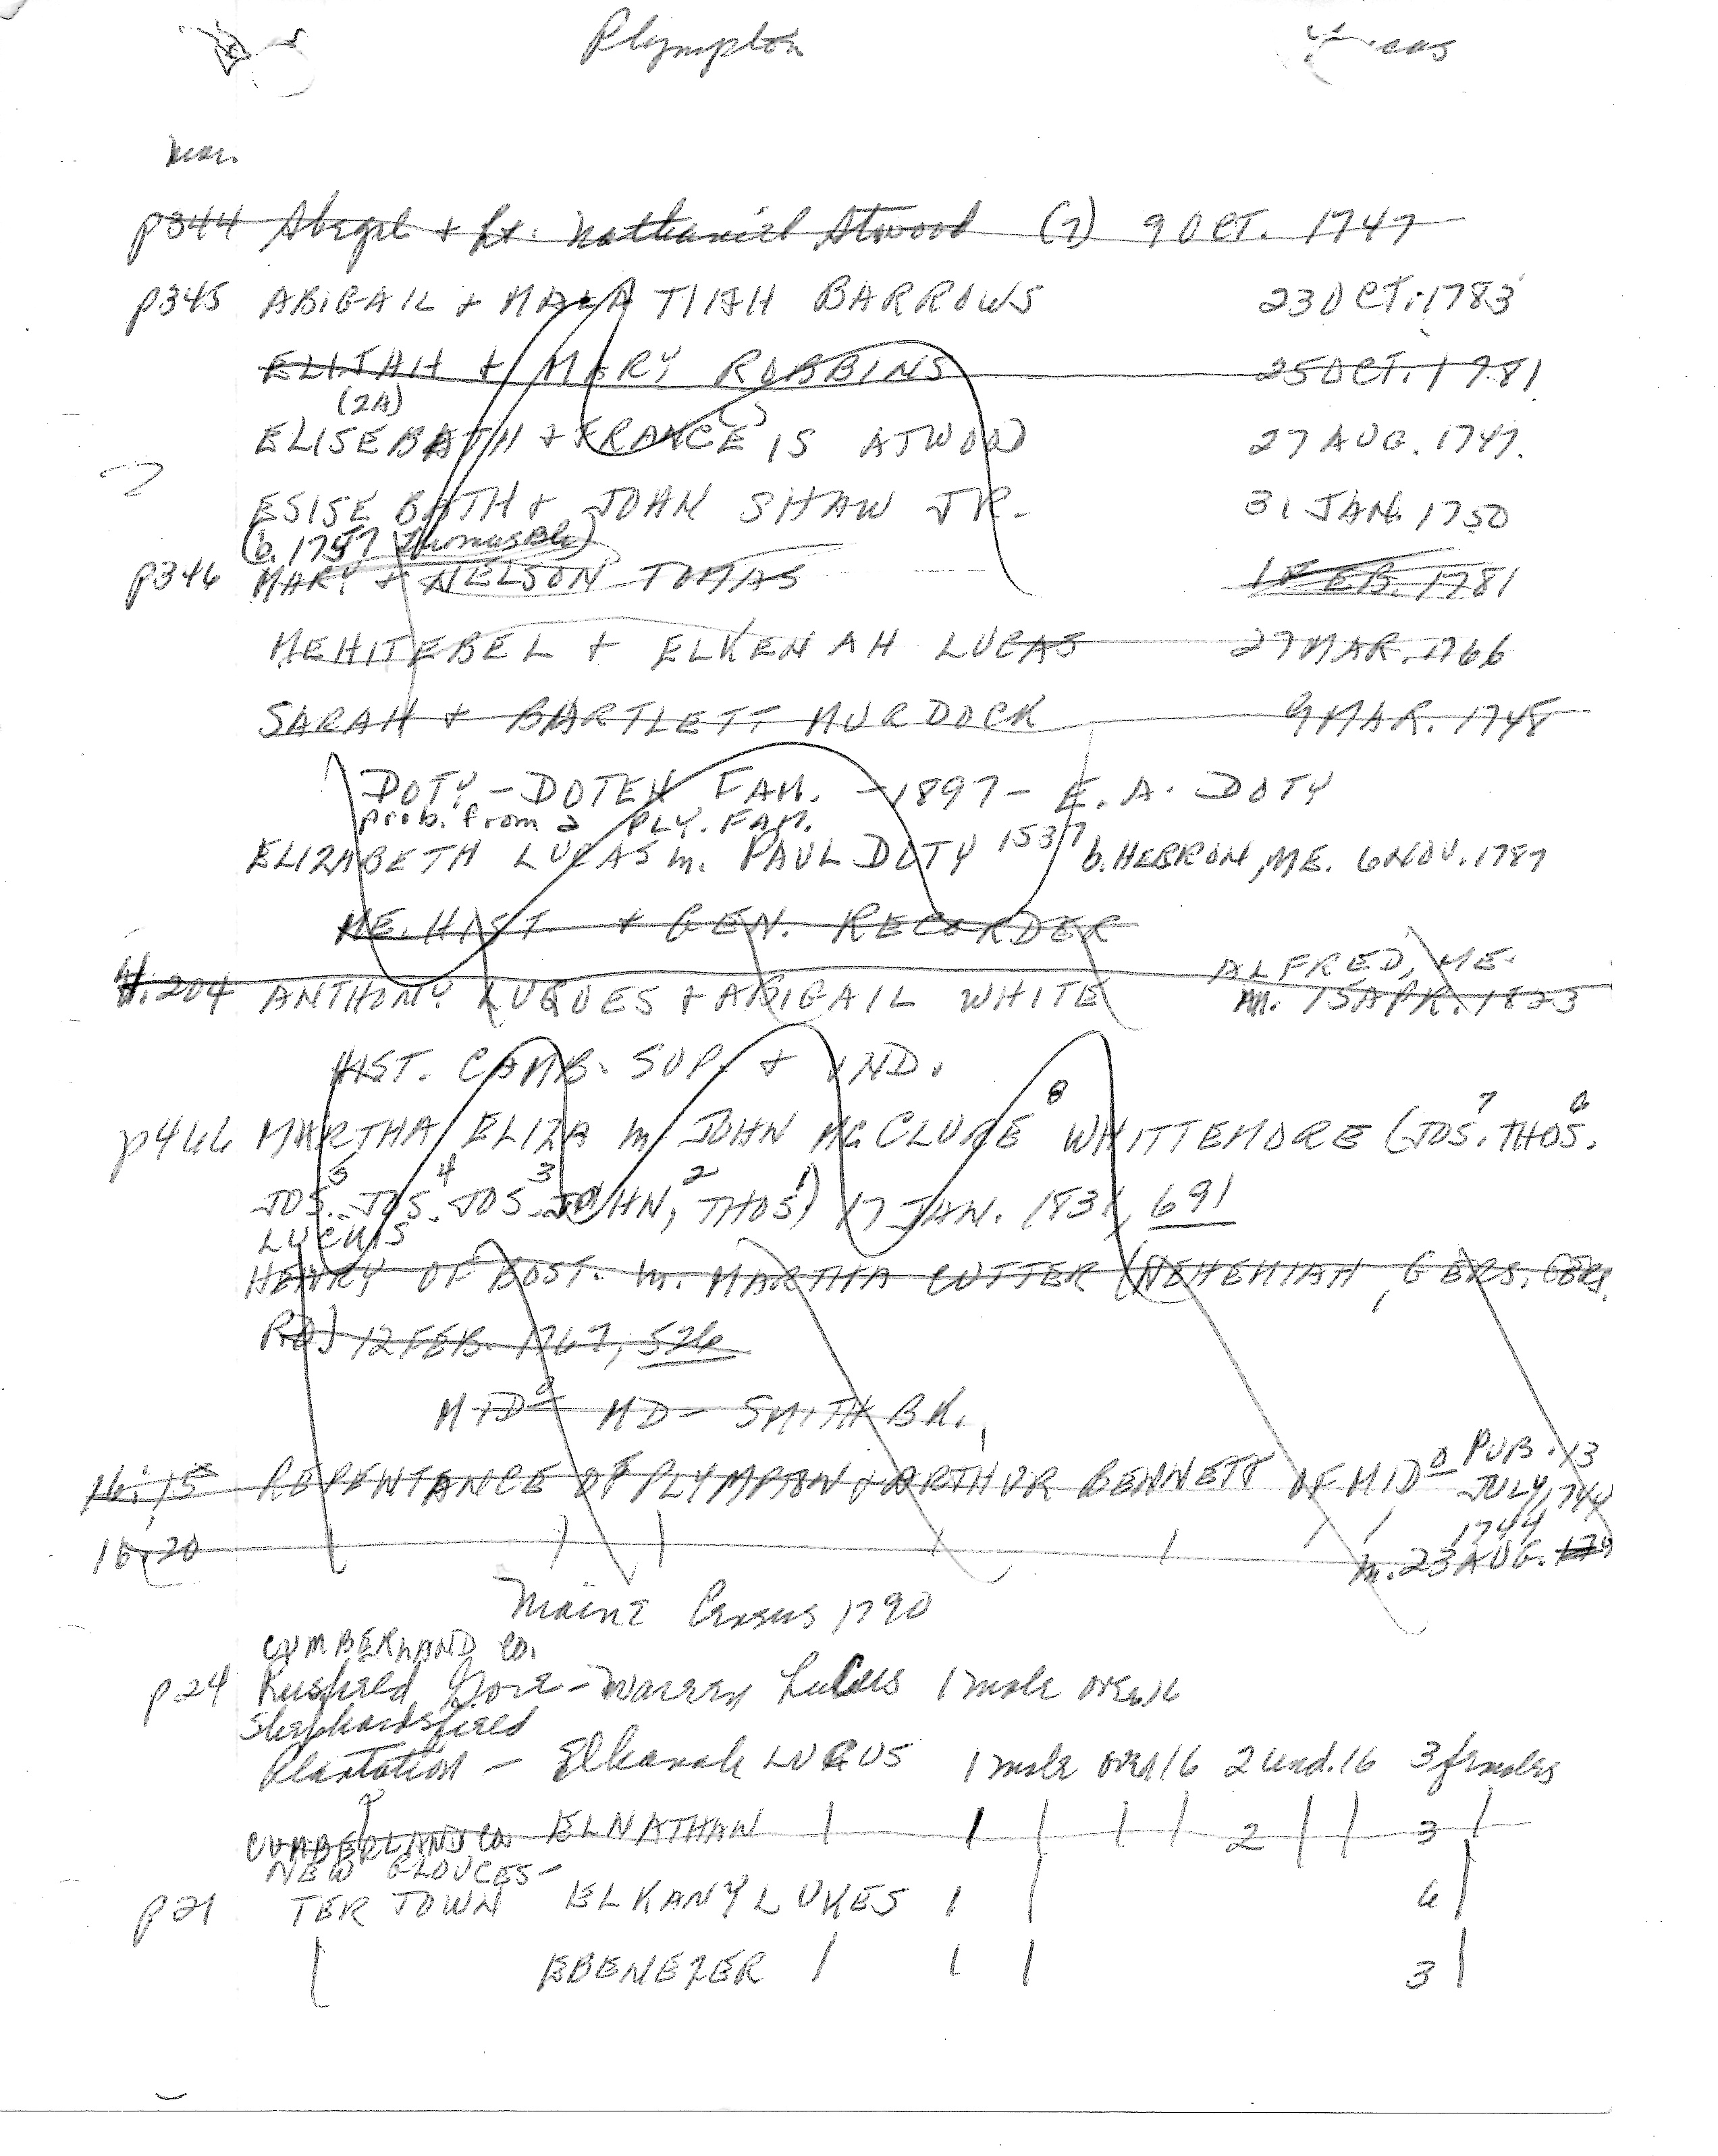 Plympton
mar.
p344 Abegal + Lt. Nathaniel Atwood (?) 9 OCT. 1747
p345 ABIGAIL + MALATIIAH BARROWS 23 OCT. 1783
ELIJAH + MARY ROBBINS 25 OCT. 1781
(2A)
ELISEBATH + FRANCE IS ATWOOD 27 AUG. 1747.
ESISEBATH + JOHN SHAW JR. 31 JAN. 1750
(b. 1757
p346 MARY + NELSON TOMAS 1 FEB. 1781
MEHITEBEL + ELKENAH LUCAS 27 MAR. 1766
SARAH + BARTLETT MURDOCK 9 MAR. 1748
DOTY - DOTEN FAM. - 1897 - E. A. DOTY
prob. from a PLY. FAM.
ELIZABETH LUCAS m. PAUL DOTY 1537 b. HEBRON, ME. 6 NOV. 1787
ME. HIST. + GEN. RECORDER
ALFRED, ME.
204 ANTHONY LUQUES + ABIGAIL WHITE m. 15 APR. 1823
HIST. CAMB. SUP. + IND.
p466 MARTHA ELIZA m. JOHN MCCLURE 8 WHITTEMORE (JOS. 7 THOS. 6
JOS. 5 JOS. 4 JOS. 3 JOHN, 2 THOS. 1) 17 JAN. 1831, 691
LUCUIS
HENRY OF BOST. m. MARTHA CUTTER (NEHEMIAH, GERS. GERS.
RD) 12 FEB. 1767, 526
MIDo MD - SMITH BK.
16:15 REPENTANCE OF PLYMPTON + ARTHUR BENNETT OF MIDo PUB. 13
JULY 1744
1744
16:20 m. 23 AUG. 174
Maine Census 1790
CUMBERLAND CO.
p24 Rusfield Gore - Warren Lucus 1 male over 16
Shephardsfield
Plantation - Elkanah LUCUS 1 male over 16 2 und. 16 3 females
CUMBERLAND CO. ELNATHAN 1 2 3
NEW GLOUCES-
p21 TER TOWN ELKANY LUKES 1 6
EBENEZER 1 3